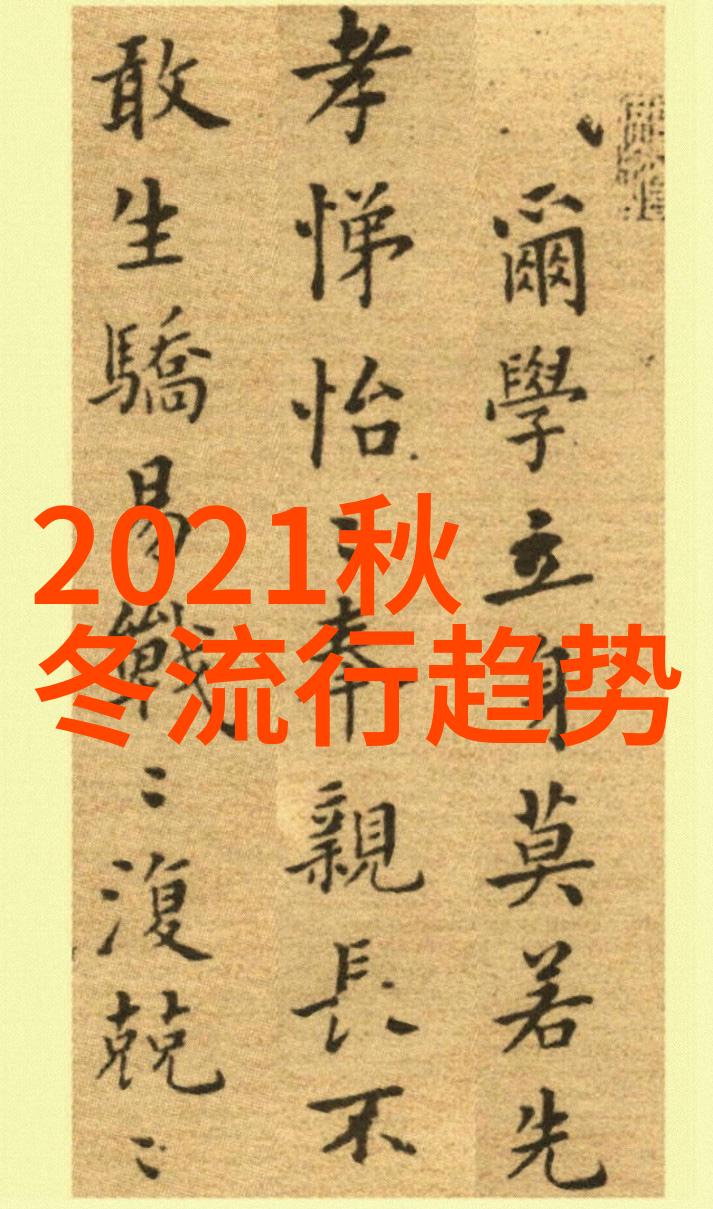 爾學立身莫若先
孝悌怡〻奉親長不
敢生驕易戰〻復兢〻
2021秋
冬流行趋势